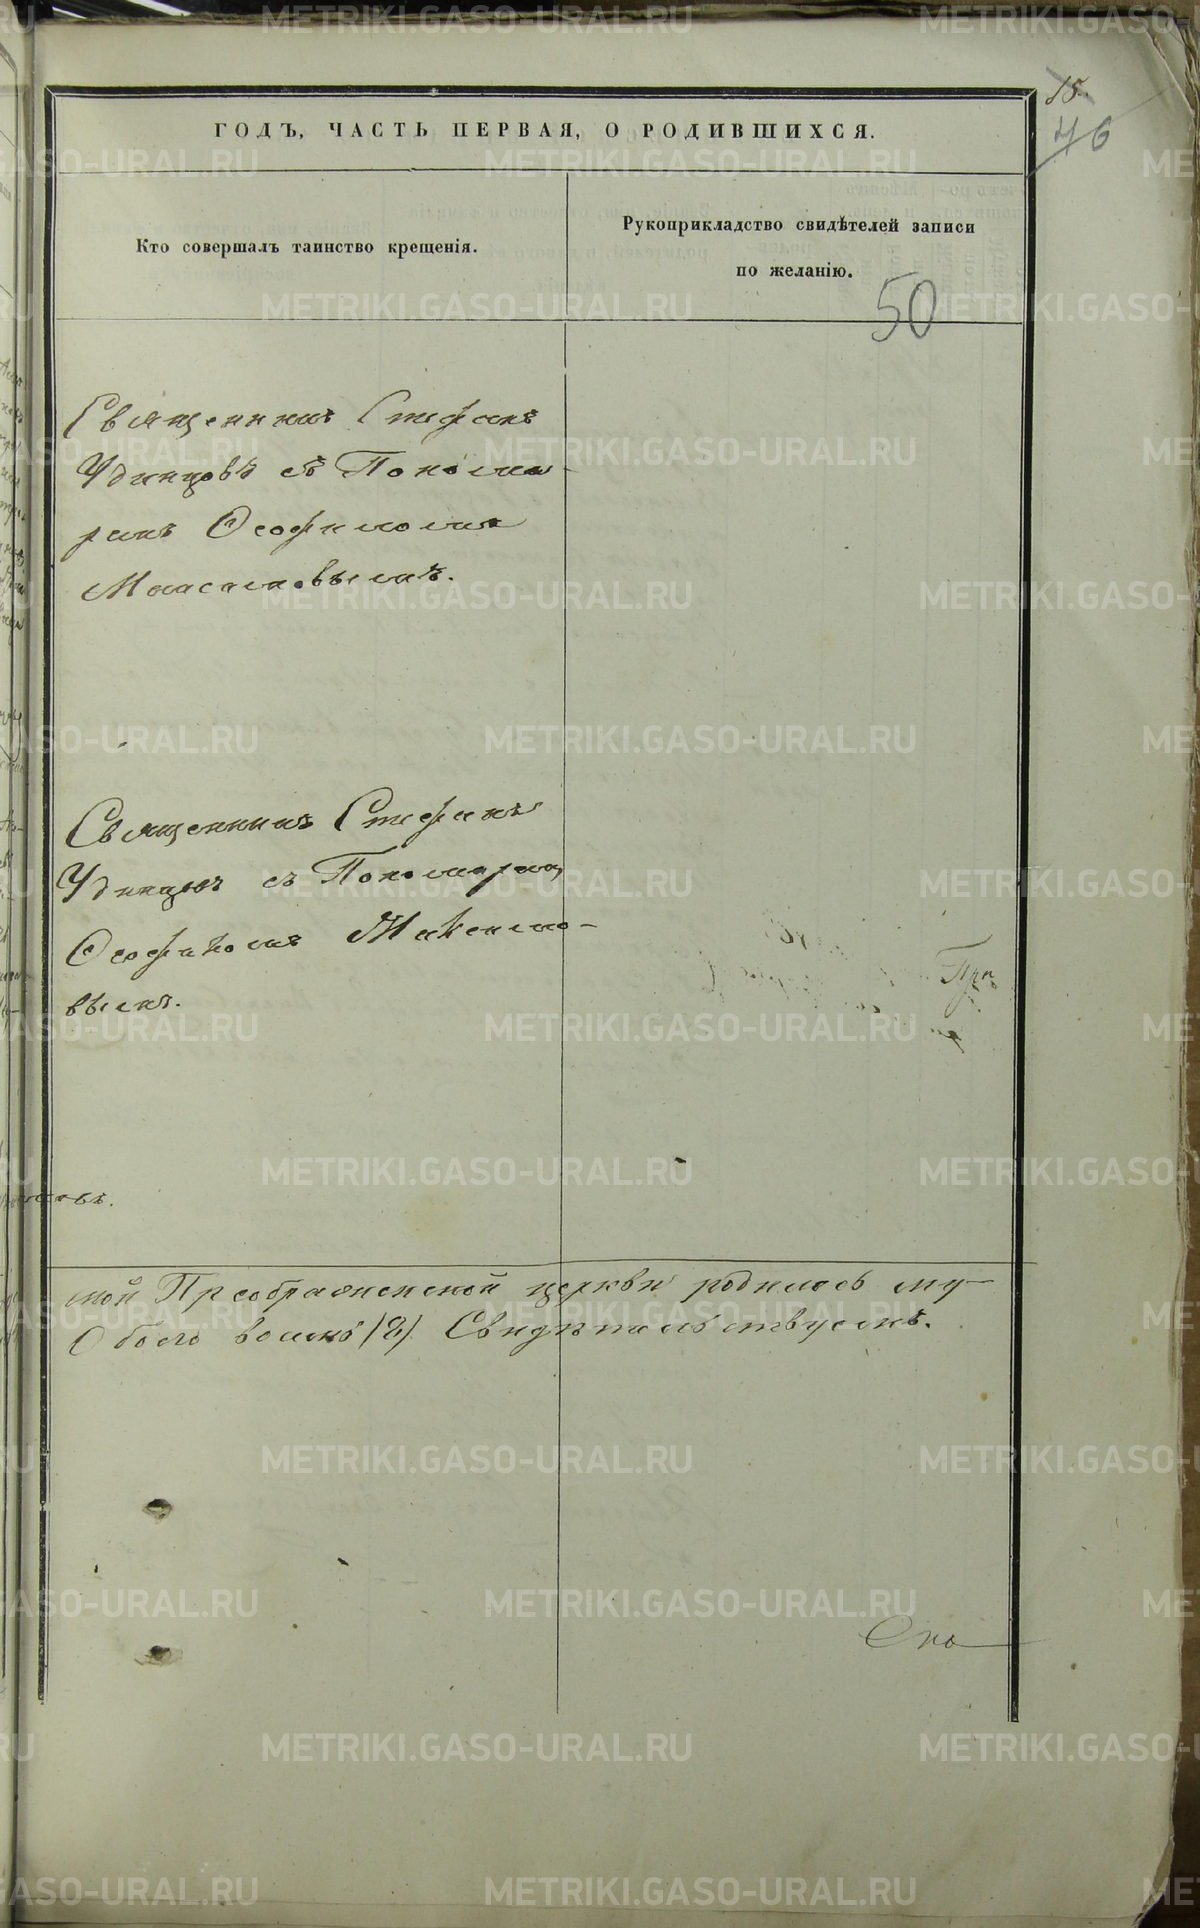 15.
46
ГОДЪ, ЧАСТЬ ПЕРВАЯ, О РОДИВШИХСЯ.
Кто совершалъ таинство крещенія.
Рукоприкладство свидѣтелей записи
по желанію.
50
Священникъ Стефанъ
Удинцовъ съ Понома-
ремъ Ѳеофиломъ
Максимовымъ.
Священникъ Стефанъ
Удинцовъ съ Пономаремъ
Ѳеофиломъ Максимо-
вымъ.
При
мой Преображенской церкви родилось му-
Обоего
Свидѣтельствуемъ.
METRIKI.GASO-URAL.RU